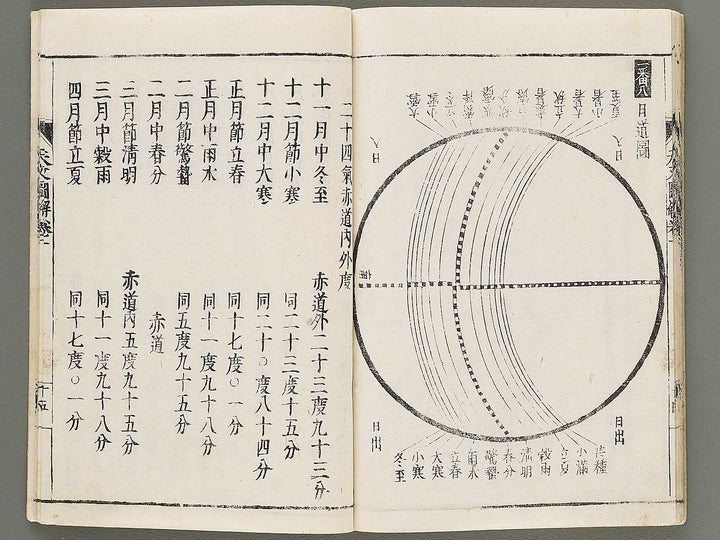 二番八
日道圖
夏至
小暑
大暑
立秋
立冬
小雪
大雪
日入
日入
南
日出
日出
芒種
小滿
立夏
穀雨
清明
春分
驚蟄
雨水
立春
大寒
小寒
冬至
二十四氣赤道內外度
十一月中冬至 赤道外二十三度九十三分
十二月節小寒 同二十三度十五分
十二月中大寒 同二十〇度八十四分
正月節立春 同十七度〇一分
正月中雨水 同十一度九十八分
二月節驚蟄 同五度九十五分
二月中春分 赤道
三月節清明 赤道內五度九十五分
三月中穀雨 同十一度九十八分
四月節立夏 同十七度〇一分
天文圖解卷二
十五